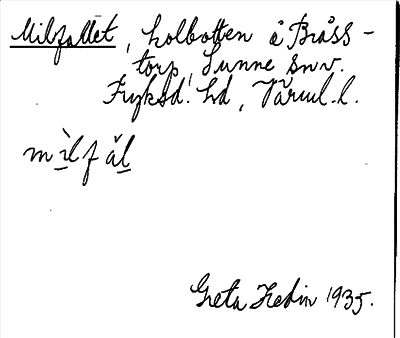 Milfallet, kolbotten å Bråss-
torp, Sunne snv.
Fryksd. hd, Värml. l.
m ìl f ăl
Greta Hedin 1935.